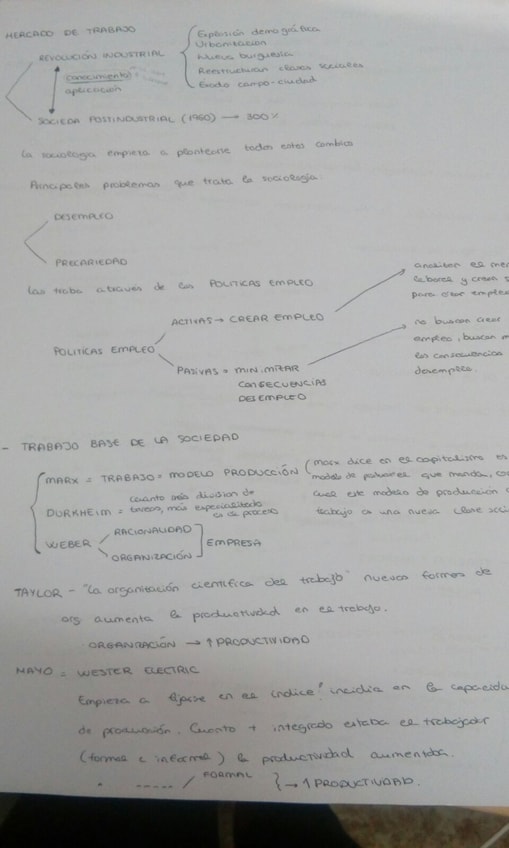 MERCADO DE TRABAJO
REVOLUCIÓN INDUSTRIAL
Explosión demográfica
Urbanización
Nueva burguesía
Reestructuran clases sociales
Éxodo campo-ciudad
conocimiento
aplicación
SOCIEDA POSTINDUSTRIAL (1960) → 300%
la sociología empieza a plantearse todos estos cambios
Principales problemas que trata la sociología:
DESEMPLEO
PRECARIEDAD
Las trata através de las POLITICAS EMPLEO
POLITICAS EMPLEO
ACTIVAS → CREAR EMPLEO
analizan el mer
laboral y crean
para crear empleo
PASIVAS = MINIMIZAR
CONSECUENCIAS
DESEMPLEO
no buscan crear
empleo, buscan m
las consecuencias
desempleo.
- TRABAJO BASE DE LA SOCIEDAD
MARX = TRABAJO = MODELO PRODUCCIÓN (marx dice en el capitalismo es
modelo de que manda, co
DURKHEIM = cuanto más division de
tareas, más especializado
es el proceso
cual este modelo de produccion
trabajo es una nueva clase soci
WEBER
RACIONALIDAD
ORGANIZACIÓN
EMPRESA
TAYLOR - "La organización científica del trabajo" nuevas formas de
org aumenta la productividad en el trabajo.
ORGANIZACIÓN → ↑ PRODUCTIVIDAD
MAYO = WESTER ELECTRIC
Empieza a fijarse en el indice incidia en la capacida
de producción. Cuanto + integrado estaba el trabajador
(formal e informal) la productividad aumentaba.
----- / FORMAL } → ↑ PRODUCTIVIDAD.